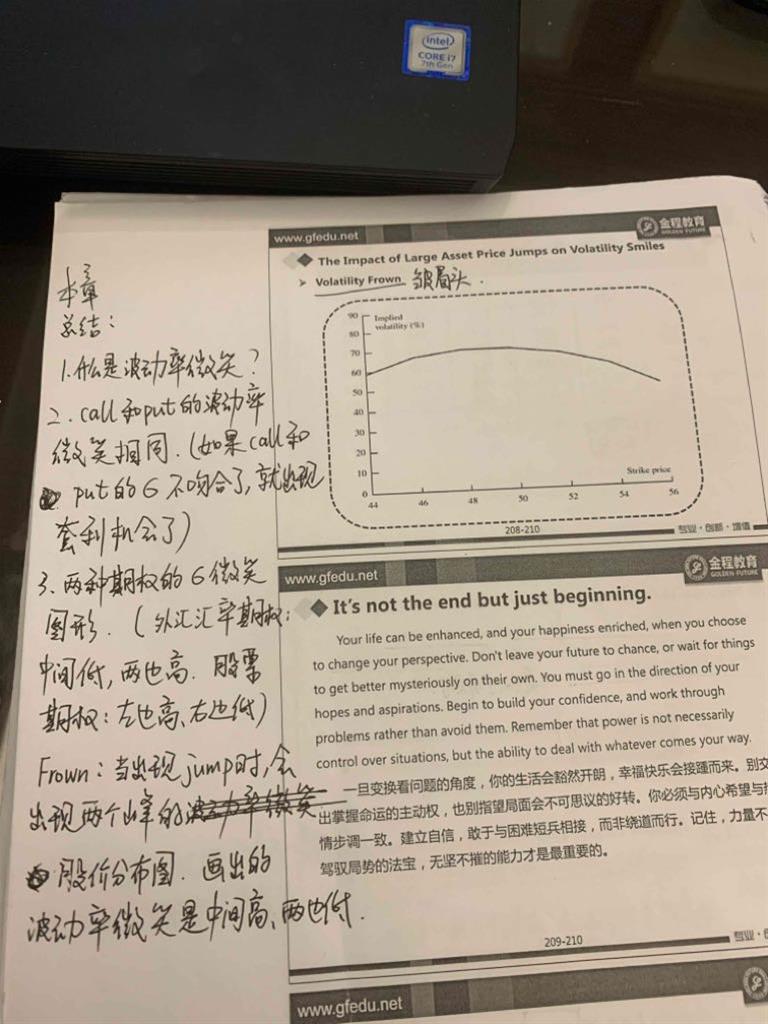 intel
CORE i7
7th Gen
本章
总结:
1.什么是波动率微笑?
2. call和put的波动率
微笑相同.(如果call和
put的6不吻合了,就出现
套利机会了)
3.两种期权的6微笑
图形.(外汇汇率期权:
中间低,两边高.股票
期权:左边高、右边低)
Frown:当出现jump时,会
出现两个山峰的波动率微笑
股价分布图.画出的
波动率微笑是中间高、两边低.
www.gfedu.net
金程教育
GOLDEN FUTURE
The Impact of Large Asset Price Jumps on Volatility Smiles
Volatility Frown 皱眉头.
Implied
volatility (%)
90
80
70
60
50
40
30
20
10
0
Strike price
44 46 48 50 52 54 56
208-210
专业·创新·增值
www.gfedu.net
金程教育
GOLDEN FUTURE
It's not the end but just beginning.
Your life can be enhanced, and your happiness enriched, when you choose
to change your perspective. Don't leave your future to chance, or wait for things
to get better mysteriously on their own. You must go in the direction of your
hopes and aspirations. Begin to build your confidence, and work through
problems rather than avoid them. Remember that power is not necessarily
control over situations, but the ability to deal with whatever comes your way.
一旦变换看问题的角度,你的生活会豁然开朗,幸福快乐会接踵而来。别交
出掌握命运的主动权,也别指望局面会不可思议的好转。你必须与内心希望与
情步调一致。建立自信,敢于与困难短兵相接,而非绕道而行。记住,力量不
驾驭局势的法宝,无坚不摧的能力才是最重要的。
209-210
专业·
www.gfedu.net